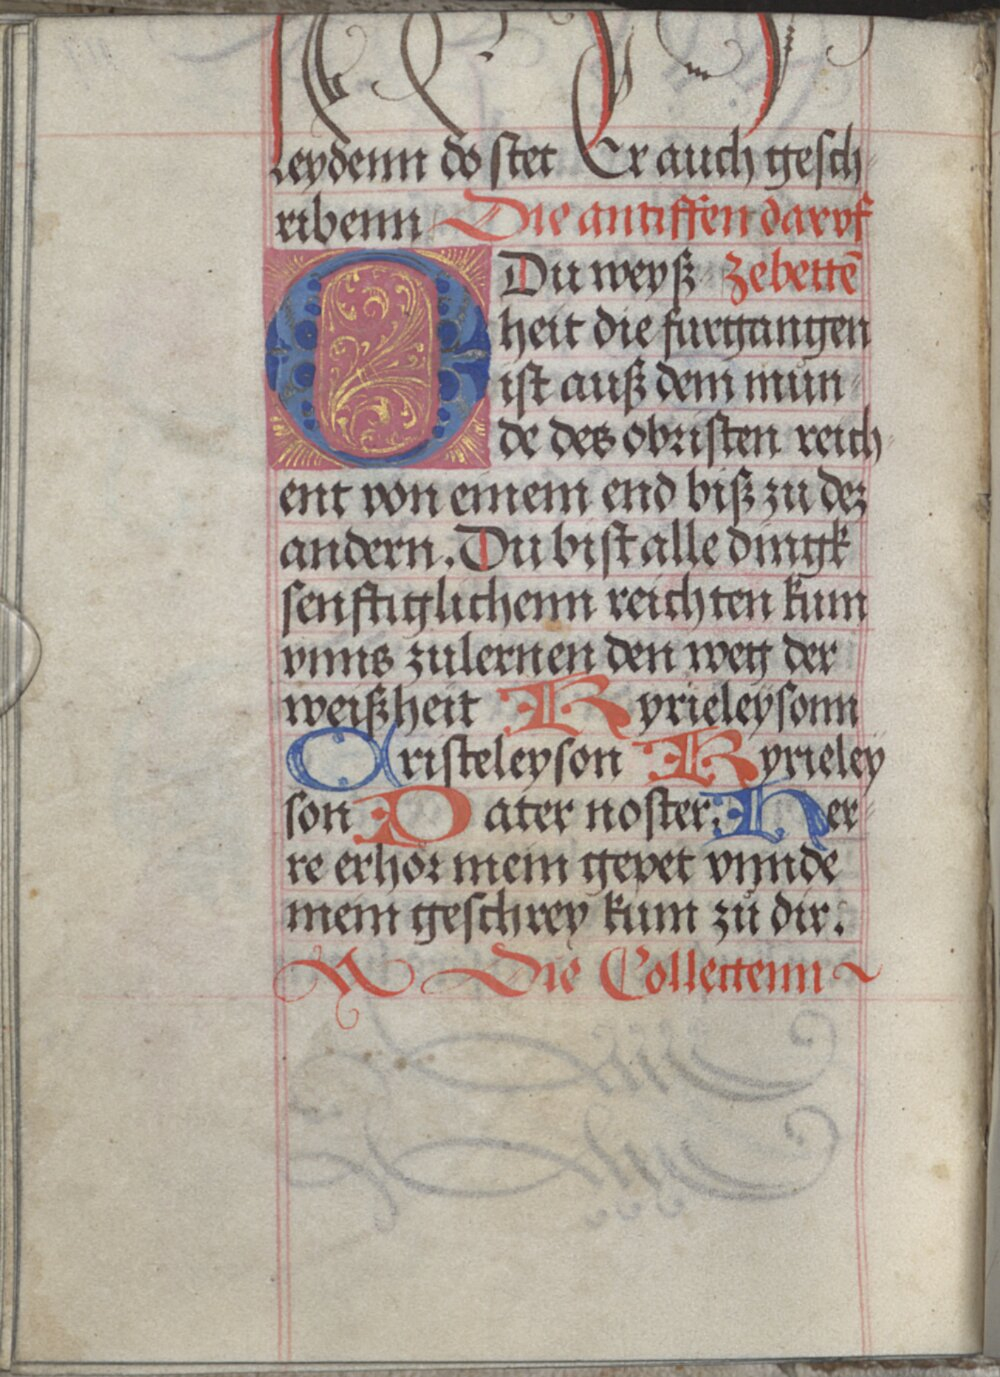 Leydenn do stet Er auch gesch
ribenn Die antiffen darvf
O Du weyß zebettē
heit die furgangen
ist auß dem mun
de des obristen reich
ent von einem end biß zu dez
andern. Du bist alle dingk
senftiglichenn reichten kum
vnns zulernen den weg der
weißheit Kyrieleysonn
Cristeleyson Kyrieley
son Pater noster. Her
re erhor mein gepet vnnde
mein geschrey kum zů dir.
Die Collectenn